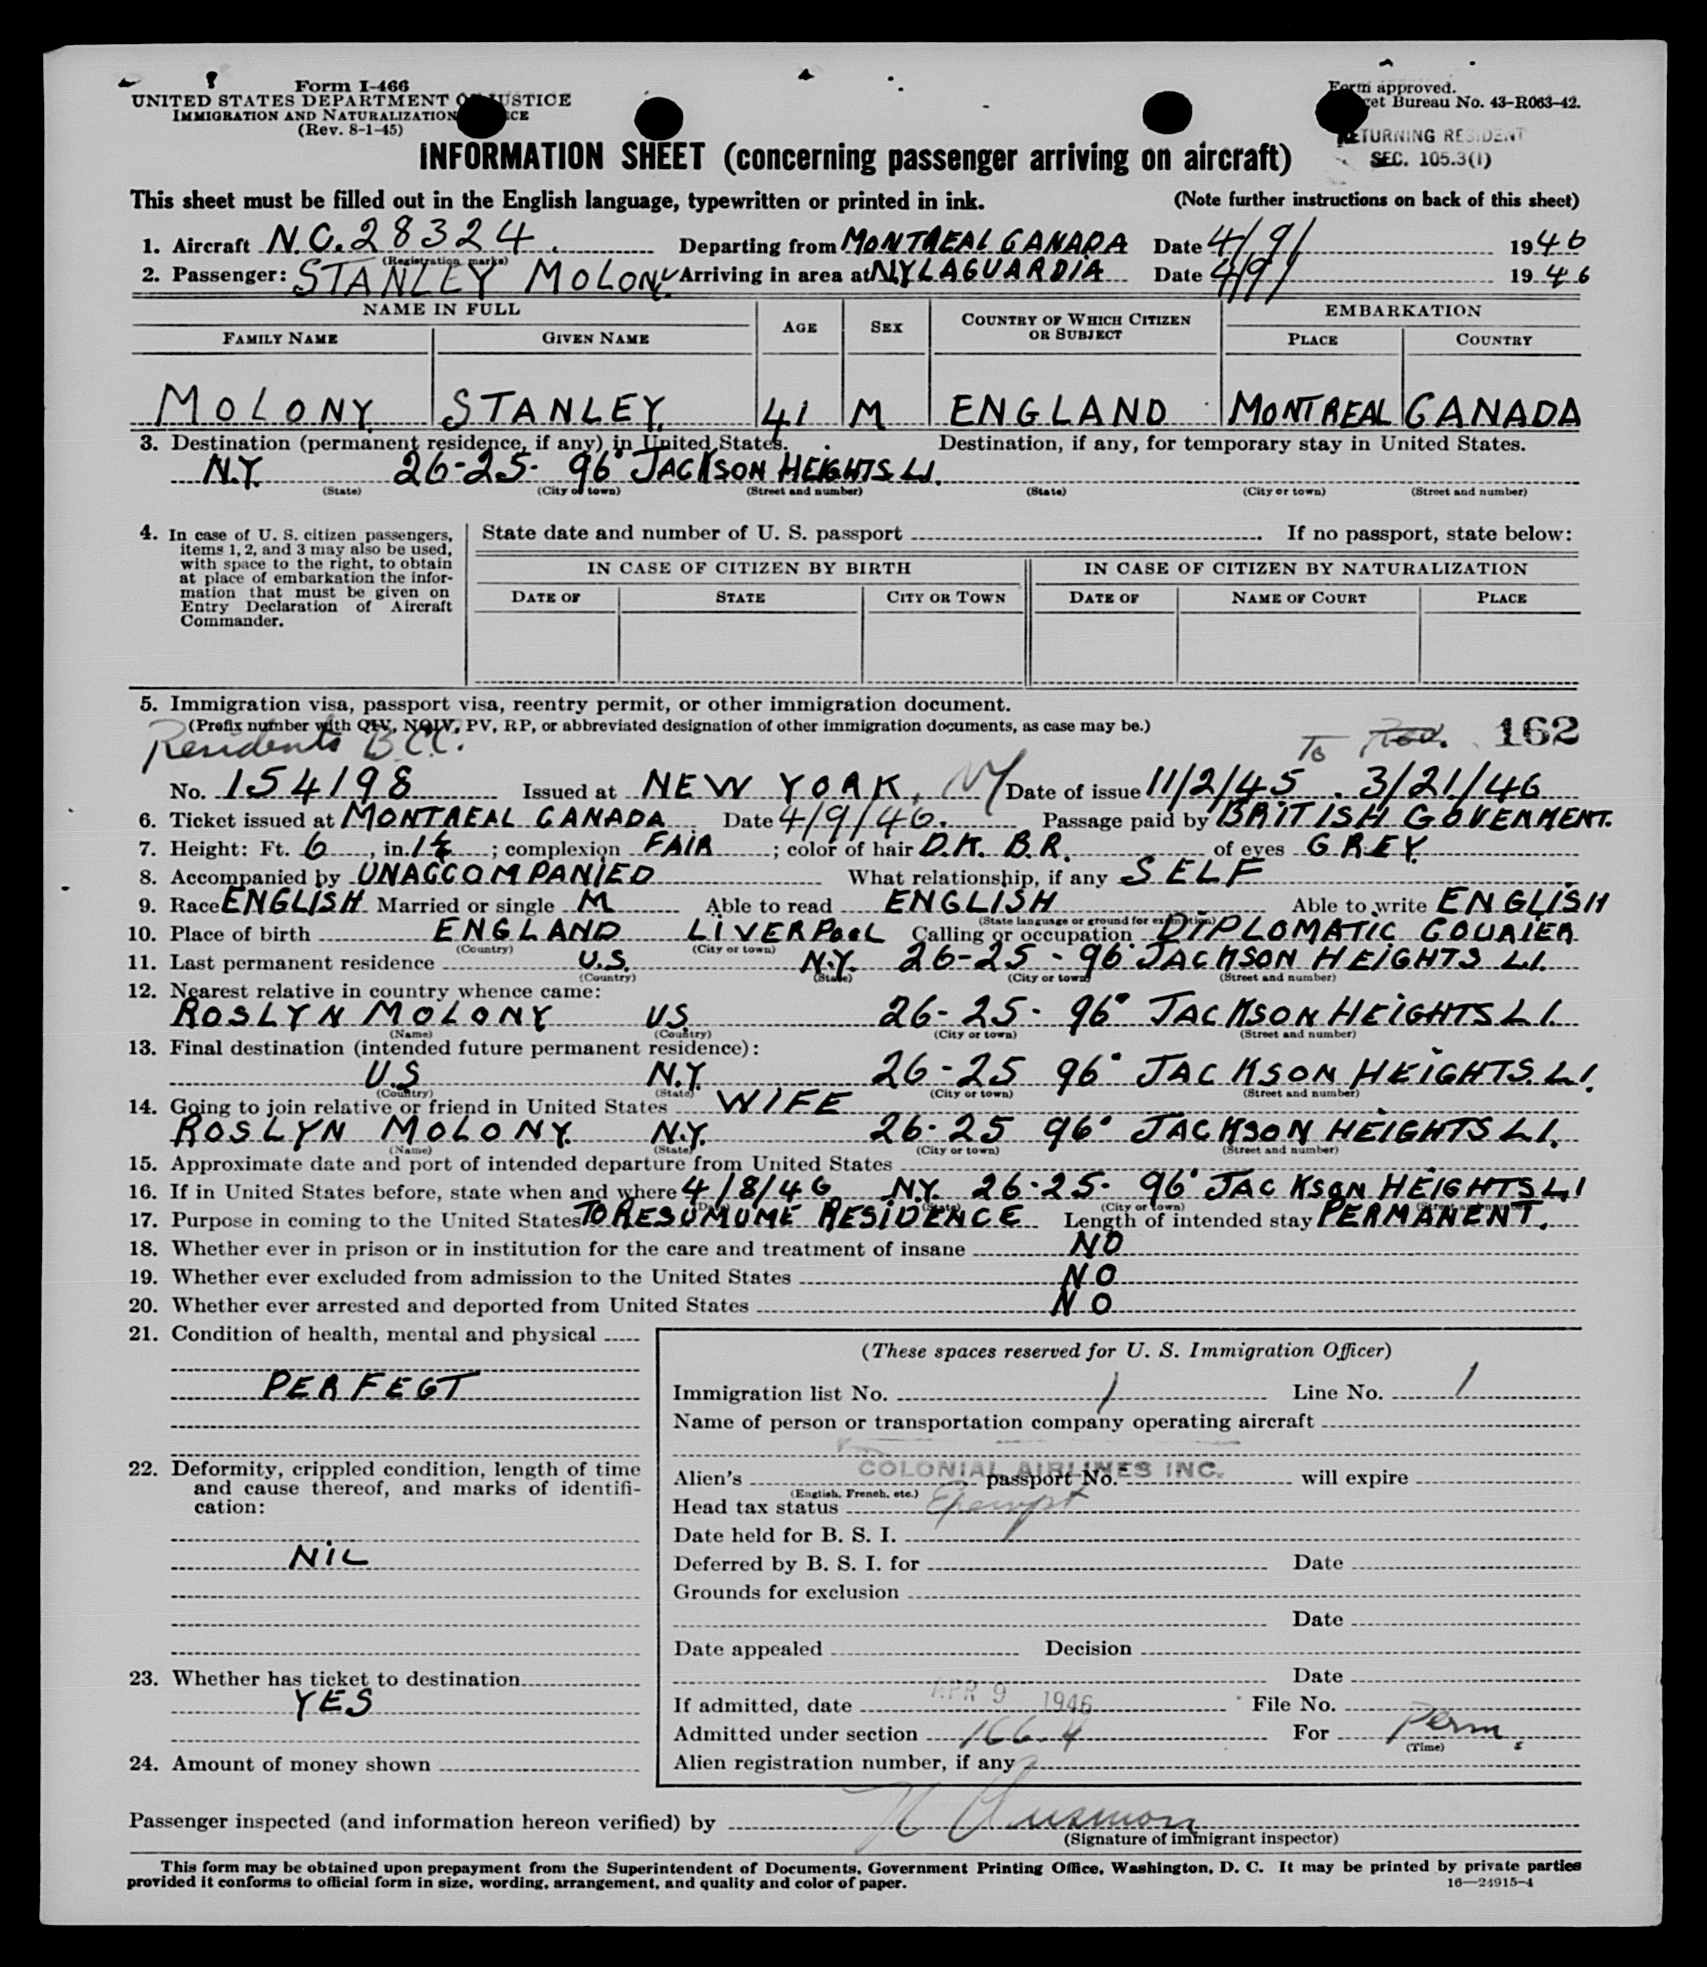 Form I-466
UNITED STATES DEPARTMENT OF JUSTICE
IMMIGRATION AND NATURALIZATION
(Rev. 8-1-45)
Form approved.
Bureau No. 43-R063-42.
RETURNING RESIDENT
SEC. 105.3(1)
INFORMATION SHEET (concerning passenger arriving on aircraft)
This sheet must be filled out in the English language, typewritten or printed in ink. (Note further instructions on back of this sheet)
1. Aircraft N.C.28324. Departing from MONTREAL CANADA Date 4/9/ 1946
(Registration marks)
2. Passenger: STANLEY MOLONY Arriving in area at N.Y LAGUARDIA Date 4/9/ 1946
NAME IN FULL AGE SEX COUNTRY OF WHICH CITIZEN OR SUBJECT EMBARKATION
FAMILY NAME GIVEN NAME PLACE COUNTRY
MOLONY STANLEY. 41 M ENGLAND MONTREAL CANADA
3. Destination (permanent residence, if any) in United States. Destination, if any, for temporary stay in United States.
N.Y. 26-25- 96° JACKSON HEIGHTS L.I.
(State) (City or town) (Street and number) (State) (City or town) (Street and number)
4. In case of U. S. citizen passengers, items 1, 2, and 3 may also be used, with space to the right, to obtain at place of embarkation the information that must be given on Entry Declaration of Aircraft Commander.
State date and number of U. S. passport If no passport, state below:
IN CASE OF CITIZEN BY BIRTH IN CASE OF CITIZEN BY NATURALIZATION
DATE OF STATE CITY OR TOWN DATE OF NAME OF COURT PLACE
5. Immigration visa, passport visa, reentry permit, or other immigration document.
(Prefix number with QIV, NQIV, PV, RP, or abbreviated designation of other immigration documents, as case may be.)
Residents B.C.C. To 162
No. 154198 Issued at NEW YORK, NY Date of issue 11/2/45 . 3/21/46
6. Ticket issued at MONTREAL CANADA Date 4/9/46. Passage paid by BRITISH GOVERMENT.
7. Height: Ft. 6, in. 1½; complexion FAIR; color of hair D.K. B.R. of eyes GREY.
8. Accompanied by UNACCOMPANIED What relationship, if any SELF
9. Race ENGLISH Married or single M Able to read ENGLISH Able to write ENGLISH
(State language or ground for exemption)
10. Place of birth ENGLAND LIVERPOOL Calling or occupation DIPLOMATIC COURIER
(Country) (City or town)
11. Last permanent residence U.S. N.Y. 26-25 - 96° JACKSON HEIGHTS L.I.
(Country) (State) (City or town) (Street and number)
12. Nearest relative in country whence came:
ROSLYN MOLONY US. 26-25- 96° JACKSON HEIGHTS L.I.
(Name) (Country) (City or town) (Street and number)
13. Final destination (intended future permanent residence):
U.S N.Y. 26-25 96° JACKSON HEIGHTS. L.I.
(Country) (State) (City or town) (Street and number)
14. Going to join relative or friend in United States WIFE
ROSLYN MOLONY. N.Y. 26-25 96° JACKSON HEIGHTS L.I.
(Name) (State) (City or town) (Street and number)
15. Approximate date and port of intended departure from United States
16. If in United States before, state when and where 4/8/46 N.Y. 26-25- 96° JACKSON HEIGHTS L.I
(City or town)
17. Purpose in coming to the United States TO RESUMUME RESIDENCE Length of intended stay PERMANENT.
18. Whether ever in prison or in institution for the care and treatment of insane NO
19. Whether ever excluded from admission to the United States NO
20. Whether ever arrested and deported from United States NO
21. Condition of health, mental and physical
PERFECT
22. Deformity, crippled condition, length of time and cause thereof, and marks of identification:
NIL
23. Whether has ticket to destination
YES
24. Amount of money shown
(These spaces reserved for U. S. Immigration Officer)
Immigration list No. 1 Line No. 1
Name of person or transportation company operating aircraft
COLONIAL AIRLINES INC.
Alien's passport No. will expire
(English, French, etc.)
Head tax status Exempt
Date held for B. S. I.
Deferred by B. S. I. for Date
Grounds for exclusion
Date
Date appealed Decision
Date
If admitted, date APR 9 1946 File No.
Admitted under section 166.4 For Perm.
(Time)
Alien registration number, if any
Passenger inspected (and information hereon verified) by
(Signature of immigrant inspector)
This form may be obtained upon prepayment from the Superintendent of Documents, Government Printing Office, Washington, D. C. It may be printed by private parties
provided it conforms to official form in size, wording, arrangement, and quality and color of paper. 16—24915-4